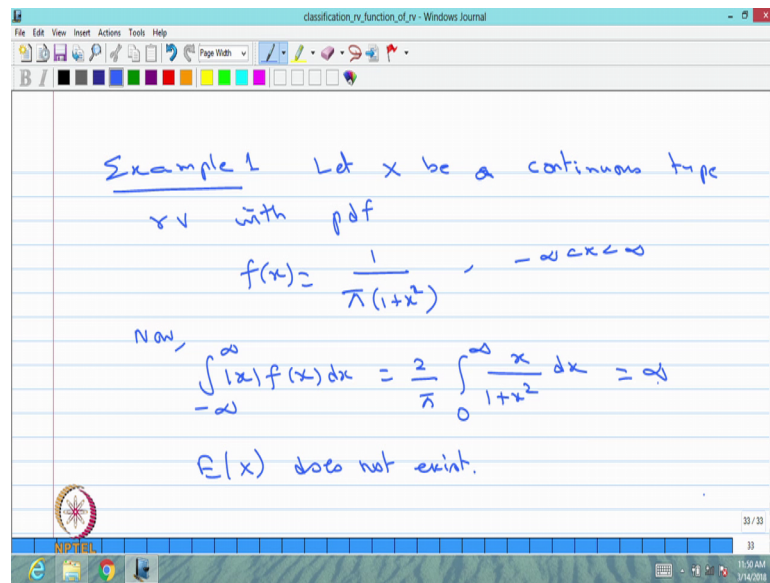 classification_rv_function_of_rv - Windows Journal
File Edit View Insert Actions Tools Help
Page Width
B I
Example 1 Let x be a continuous type
rv with pdf
f(x) = 1/(π(1+x²)), -∞<x<∞
Now,
∫_{-∞}^{∞} |x| f(x) dx = 2/π ∫_0^∞ x/(1+x²) dx = ∞
E(x) does not exist.
33 / 33
33
NPTEL
11:50 AM
3/14/2018